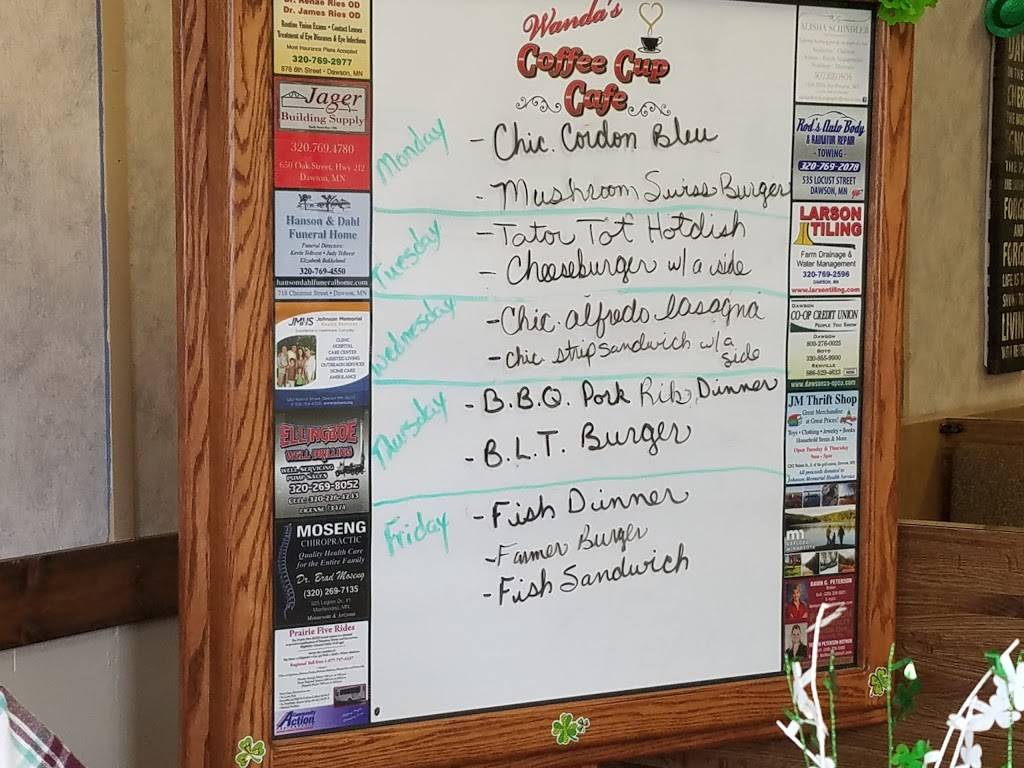 Wanda's
Coffee Cup
Cafe
Monday
- Chic. Cordon Bleu
- Mushroom Swiss Burger
Tuesday
- Tator Tot Hotdish
- Cheeseburger w/a side
Wednesday
- Chic. alfredo lasagna
- chic strip sandwich w/a
side
Thursday
- B.B.Q. Pork Rib Dinner
- B.L.T. Burger
Friday
- Fish Dinner
- Farmer Burger
- Fish Sandwich
Dr. Renae Ries OD
Dr. James Ries OD
Routine Vision Exams • Contact Lenses
Treatment of Eye Diseases & Eye Infections
Most Insurance Plans Accepted
320-769-2977
878 6th Street • Dawson, MN
Jager
Building Supply
320.769.4780
650 Oak Street, Hwy 212
Dawson, MN
Hanson & Dahl
Funeral Home
Funeral Directors:
320-769-4550
hansondahlfuneralhome.com
718 Chestnut Street • Dawson, MN
JMHS Johnson Memorial
CLINIC
HOSPITAL
CARE CENTER
ASSISTED LIVING
OUTREACH SERVICES
HOME CARE
AMBULANCE
ELLINGBOE
WELL DRILLING
WELL SERVICING
PUMP SALES
320-269-8052
CELL: 320-226-4243
MOSENG
CHIROPRACTIC
Quality Health Care
for the Entire Family
Dr. Brad Moseng
(320) 269-7135
Minnesota & Arizona
Prairie Five Rides
Community
Action
ALISHA SCHINDLER
Rod's Auto Body
& RADIATOR REPAIR
- TOWING -
320-769-2078
535 LOCUST STREET
DAWSON, MN
LARSON
TILING
Farm Drainage &
Water Management
320-769-2596
DAWSON, MN
www.larsontiling.com
DAWSON
CO-OP CREDIT UNION
PEOPLE YOU KNOW
DAWSON
800-276-0025
BOYD
320-855-9900
RENVILLE
JM Thrift Shop
Great Merchandise
at Great Prices!
Toys • Clothing • Jewelry • Books
Household Items & More
Open Tuesday & Thursday
All proceeds donated to
Johnson Memorial Health Service
mn
EXPLORE
MINNESOTA
DAWN G. PETERSON